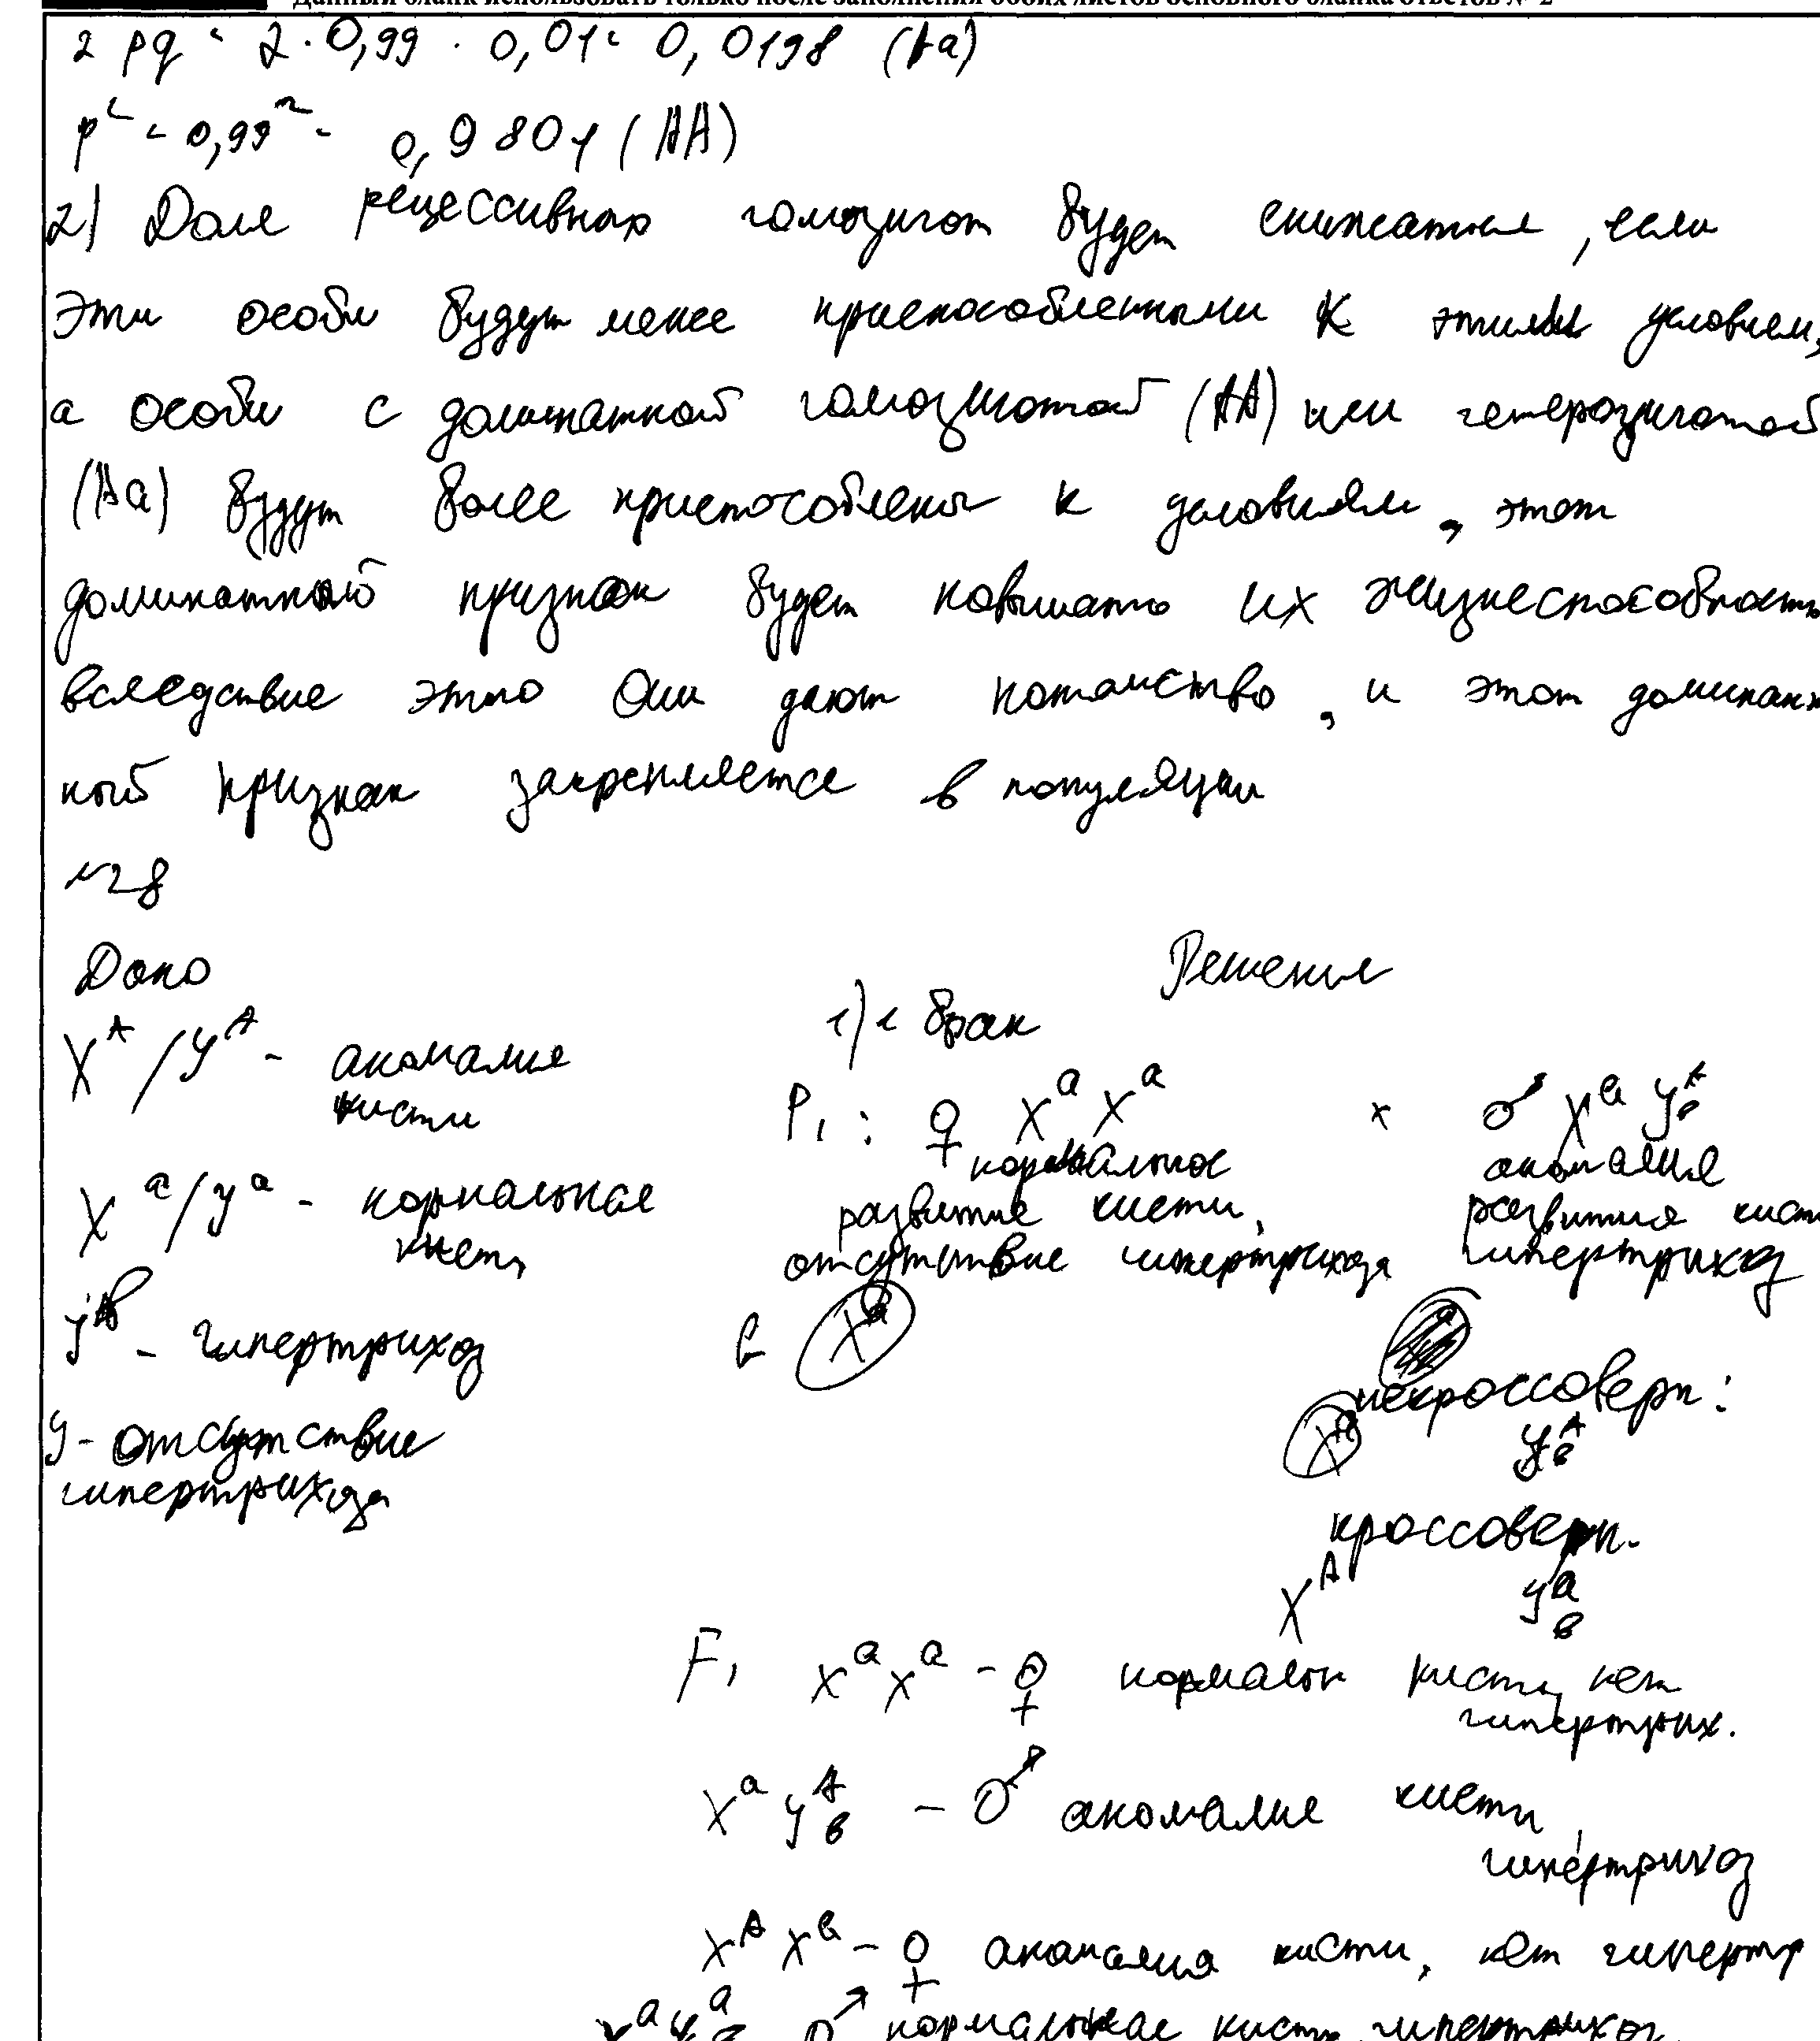 Данный бланк использовать только после заполнения обоих листов основного бланка ответов № 2
2 pq = 2 · 0,99 · 0,01 = 0,0198 (Aa)
p² = 0,99² = 0,9801 (AA)
2) Доля рецессивных гомозигот будет снижаться, если
эти особи будут менее приспособленными к этим условиям,
а особи с доминатной гомозиготой (AA) или гетерозиготой
(Aa) будут более приспособлены к условиям, этот
доминатный признак будет повышать их жизнеспособность
вследствие этого они дают потомство, и этот доминант
ный признак закрепляется в популяции
№28
Дано
Решение
X^A / Y^A - аномалия
кисти
X^a / Y^a - нормальная
кисть
Y^B - гипертрихоз
Y - отсутствие
гипертрихоза
1) 1 брак
P₁: ♀ X^a X^a x ♂ X^a Y^A_B
нормальное аномалия
развитие кисти, развития кист
отсутствие гипертрихоза гипертрихоз
G X^a
некроссоверн:
X^a Y^A_B
кроссоверн.
X^A Y^a_B
F₁ X^a X^a - ♀ нормальн кисть, нет
гипертрих.
X^a Y^A_B - ♂ аномалия кисти,
гипертрихоз
X^A X^a - ♀ аномалия кисти, нет гипертр
X^a Y^a_B ♂ нормальная кисть, гипертрихоз.